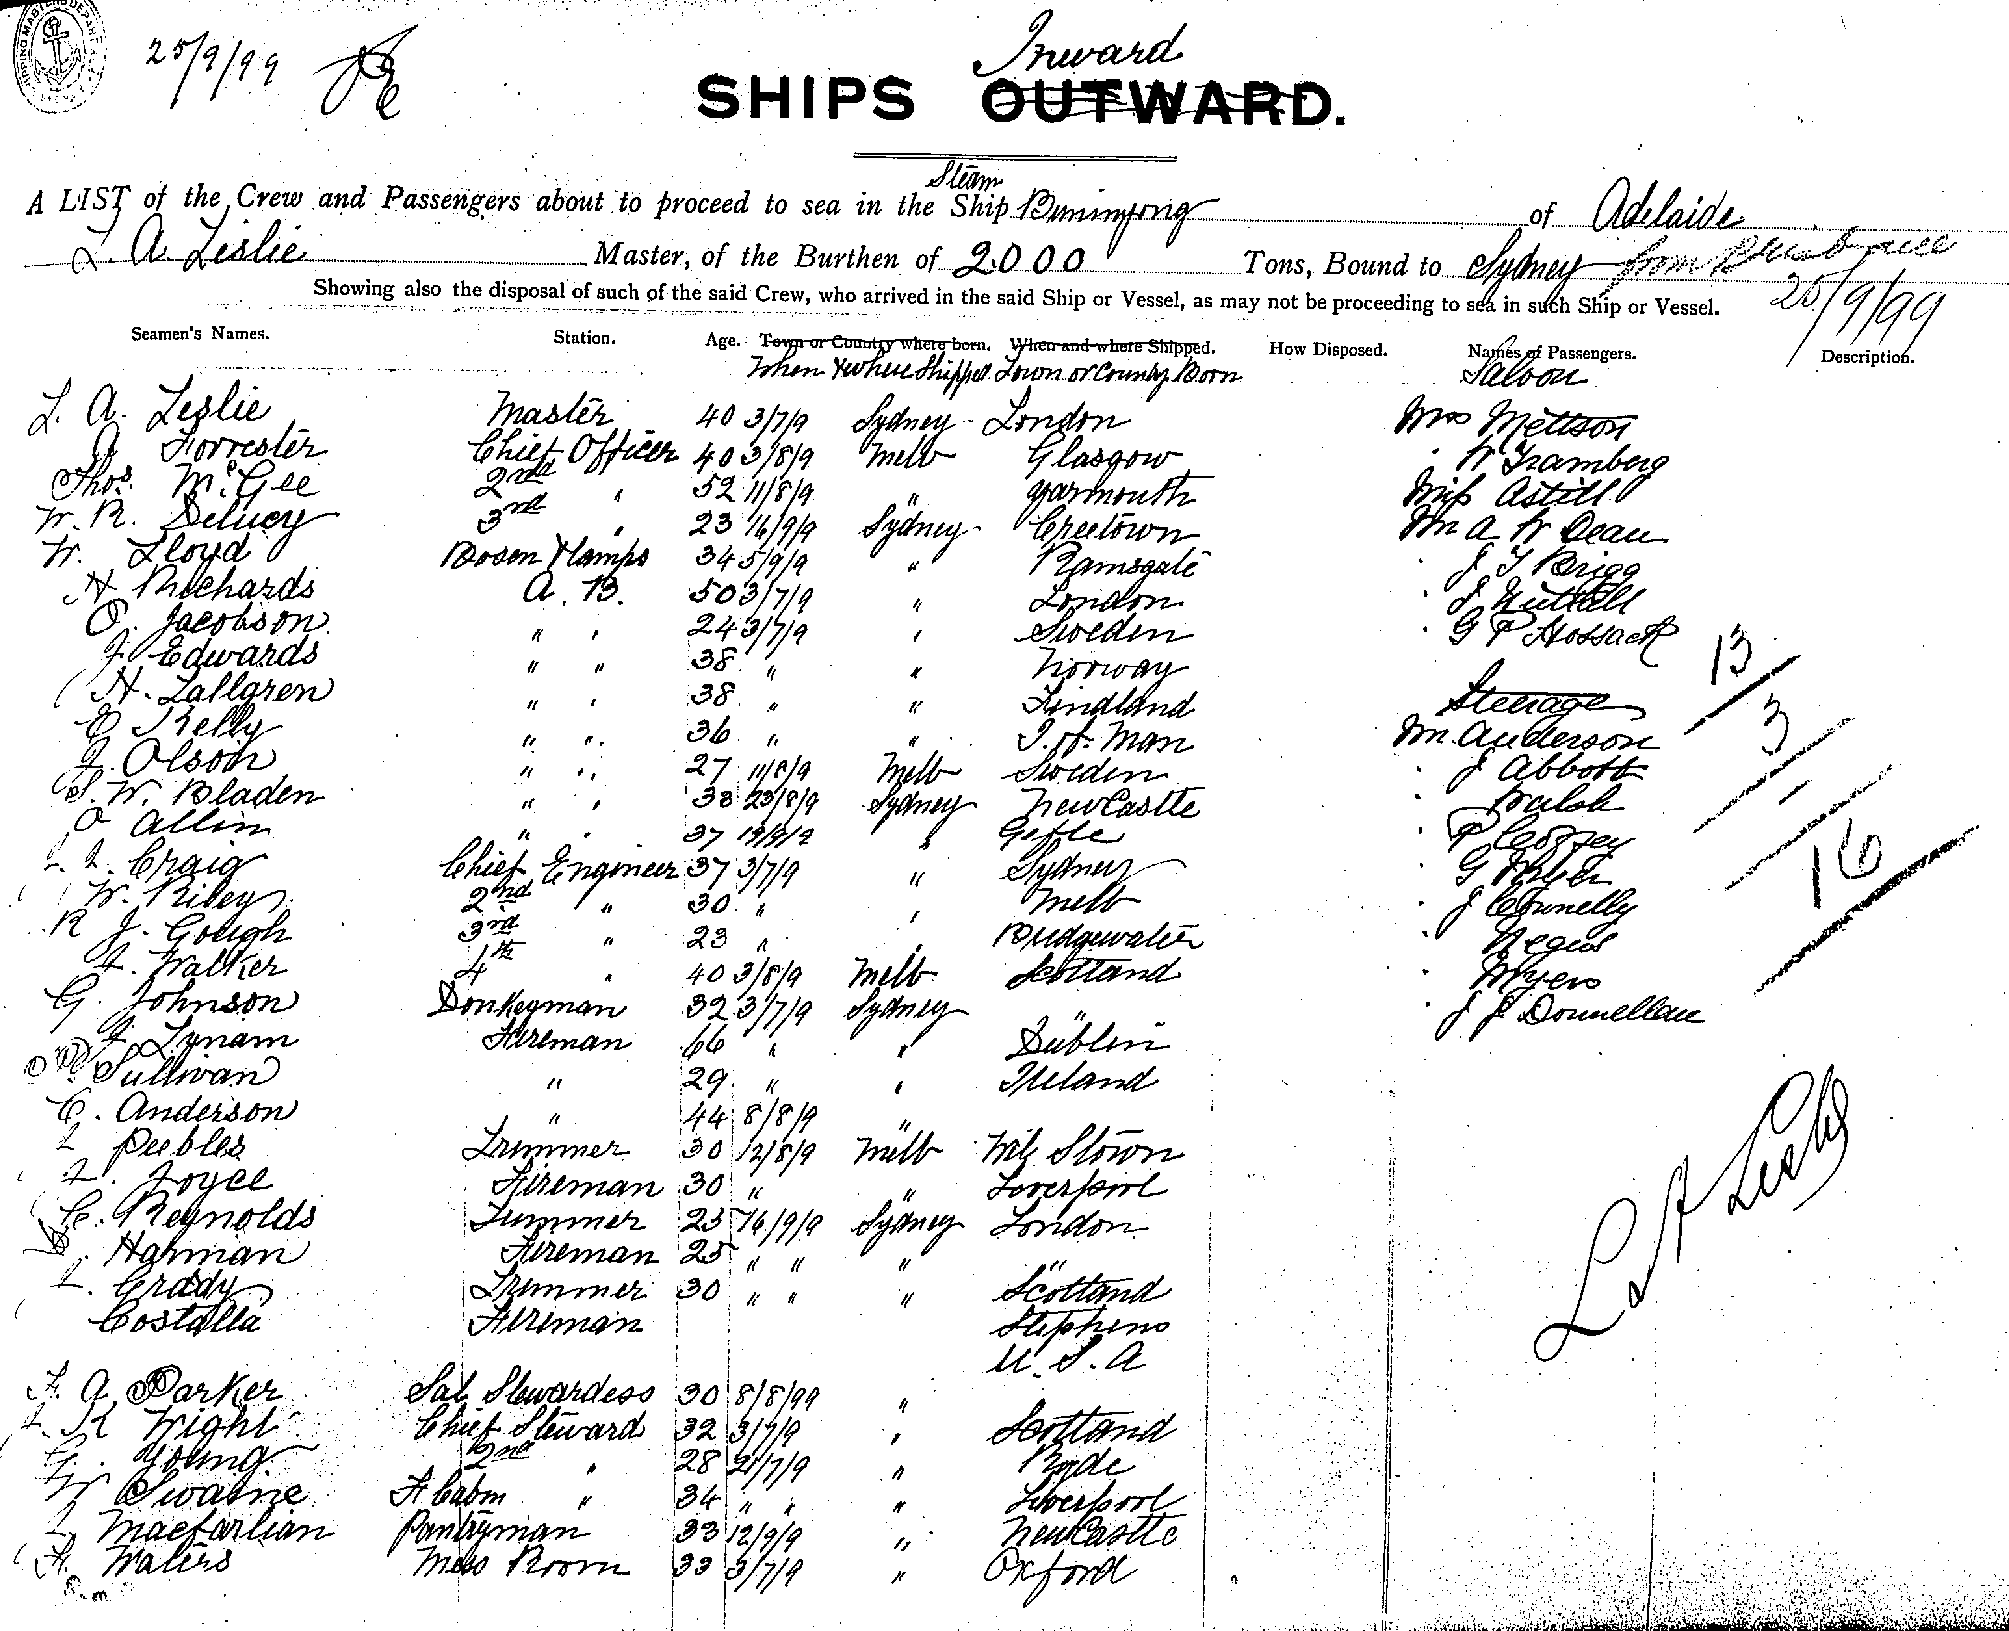 25/9/99
Inward
SHIPS OUTWARD.
Steam
A LIST of the Crew and Passengers about to proceed to sea in the Ship Buninyong of Adelaide
L. A. Leslie Master, of the Burthen of 2000 Tons, Bound to Sydney from Brisbane
Showing also the disposal of such of the said Crew, who arrived in the said Ship or Vessel, as may not be proceeding to sea in such Ship or Vessel. 25/9/99
Seamen's Names. Station. Age. Town or Country where born. When and where Shipped. How Disposed. Names of Passengers. Description.
When & where Shipped Town or County Born Saloon
L. A. Leslie Master 40 3/7/9 Sydney London Mrs Mettson
A Forrester Chief Officer 40 3/8/9 Melb Glasgow " W Framberg
Thos. McGee 2nd " 52 11/8/9 " Yarmouth Miss Astill
W. R. Delucy 3rd " 23 16/9/9 Sydney Creetown Mr A W Dean
W. Lloyd Bosen & Lamps 34 5/9/9 " Ramsgate J T Brigg
H Richards A. B. 50 3/7/9 " London " J Nuttall
O. Jacobson " " 24 3/7/9 " Sweden " G P Hossack
J. Edwards " " 38 " " Norway
H. Lallgren " " 38 " " Findland Steerage
E Kelly " " 36 " " I. of. Man Mr. Anderson
J. Olson " " 27 11/8/9 Melb Sweden " J Abbott
S. W. Bladen " " 38 23/8/9 Sydney NewCastle " Walsh
O Allin " " 37 " Gefle " P
L. L. Craig Chief Engineer 37 3/7/9 " Sydney " G
W. Riley 2nd " 30 " " Melb " J Connelly
R J. Gough 3rd " 23 " Bridgewater " Negus
J. Walker 4th " 40 3/8/9 Melb Scotland " Myers
G. Johnson Donkeyman 32 3/7/9 Sydney " J J Donnellan
J. Lynam Fireman 66 " " Dublin
Sullivan " 29 " " Ireland
C. Anderson " 44 8/8/9
L Peebles Trimmer 30 12/8/9 Melb
L. Joyce Fireman 30 " " Liverpool
C. Reynolds Trimmer 23 16/9/9 Sydney London
Harman Fireman 25 " " " "
L. Crady Trimmer 30 " " " Scotland
Costalla Fireman Stephens
U. S. A
F. A Parker Sal Stewardess 30 8/8/99 "
L. K Wight Chief Steward 32 3/7/9 " Scotland
G. Young 2nd " 28 21/7/9 " Ryde
W Swaine F Cabin " 34 " " " Liverpool
L. Macfarlian Pantryman 33 12/9/9 " NewCastle
F. Waters Mess Room 33 3/7/9 " Oxford
13
3
16
L A Leslie